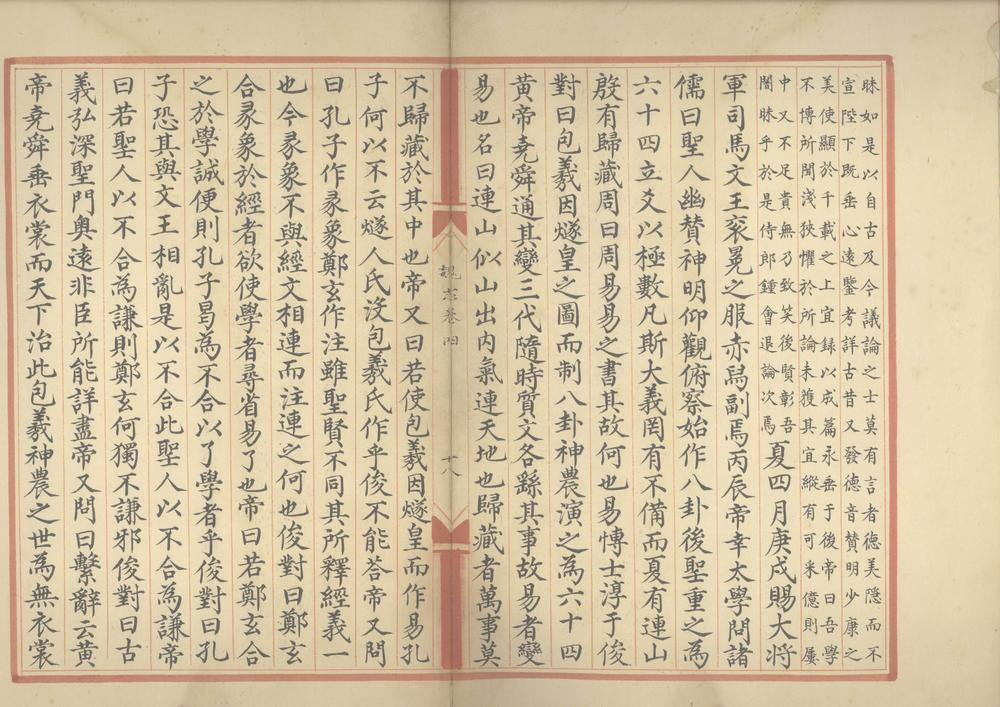 昧如是以自古及今議論之士莫有言者德美隐而不
宣陛下既垂心遠鑒考詳古昔又發德音賛明少康之
美使顯於千載之上宜録以成篇永垂于後帝曰吾學
不博所聞淺狹懼於所論未獲其宜縱有可采億則屢
中又不足貴無乃致笑後賢彰吾
闇昧乎於是侍郎鍾會退論次焉
夏四月庚戌賜大将
軍司馬文王衮冕之服赤舄副焉丙辰帝幸太學問諸
儒曰聖人幽賛神明仰觀俯察始作八卦後聖重之為
六十四立爻以極數凡斯大義罔有不備而夏有連山
殷有歸藏周曰周易易之書其故何也易愽士淳于俊
對曰包羲因燧皇之圖而制八卦神農演之為六十四
黄帝堯舜通其變三代隨時質文各繇其事故易者變
易也名曰連山似山出内氣連天地也歸藏者萬事莫
魏志卷四
十八
不歸藏於其中也帝又曰若使包羲因燧皇而作易孔
子何以不云燧人氏没包羲氏作乎俊不能荅帝又問
曰孔子作彖象鄭玄作注雖聖賢不同其所釋經義一
也今彖象不與經文相連而注連之何也俊對曰鄭玄
合彖象於經者欲使學者尋省易了也帝曰若鄭玄合
之於學誠便則孔子曷為不合以了學者乎俊對曰孔
子恐其與文王相亂是以不合此聖人以不合為謙帝
曰若聖人以不合為謙則鄭玄何獨不謙邪俊對曰古
義弘深聖門奥遠非臣所能詳盡帝又問曰繫辭云黄
帝堯舜垂衣裳而天下治此包羲神農之世為無衣裳